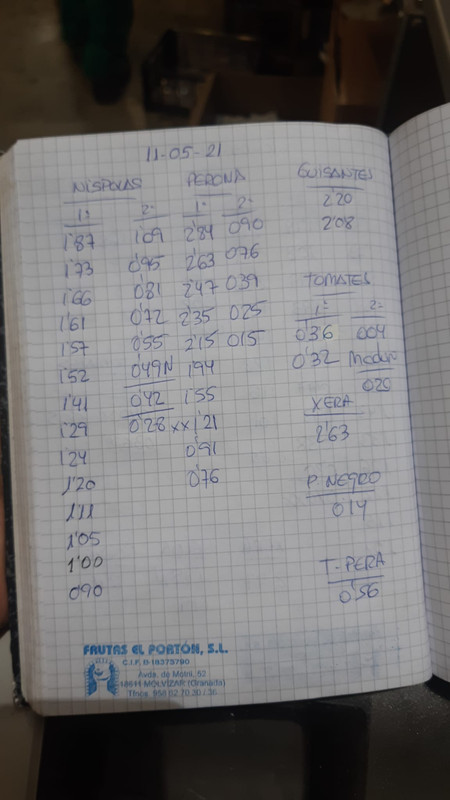 11-05-21
NISPOLAS
1ª 2ª
1'87 1'09
1'73 0'95
1'66 0'81
1'61 0'72
1'57 0'55
1'52 0'49N
1'41 0'42
1'29 0'28
1'24
1'20
1'11
1'05
1'00
0'90
PERONA
1ª 2ª
2'84 0'90
2'63 0'76
2'47 0'39
2'35 0'25
2'15 0'15
1'94
1'55
xx 1'21
0'91
0'76
GUISANTES
2'20
2'08
TOMATES
1ª 2ª
0'36 0'04
0'32 Maduro
0'20
XERA
2'63
P. NEGRO
0'14
T-PERA
0'56
FRUTAS EL PORTÓN, S.L.
C.I.F. B-18375790
Avda. de Motril, 52
18611 MOLVÍZAR (Granada)